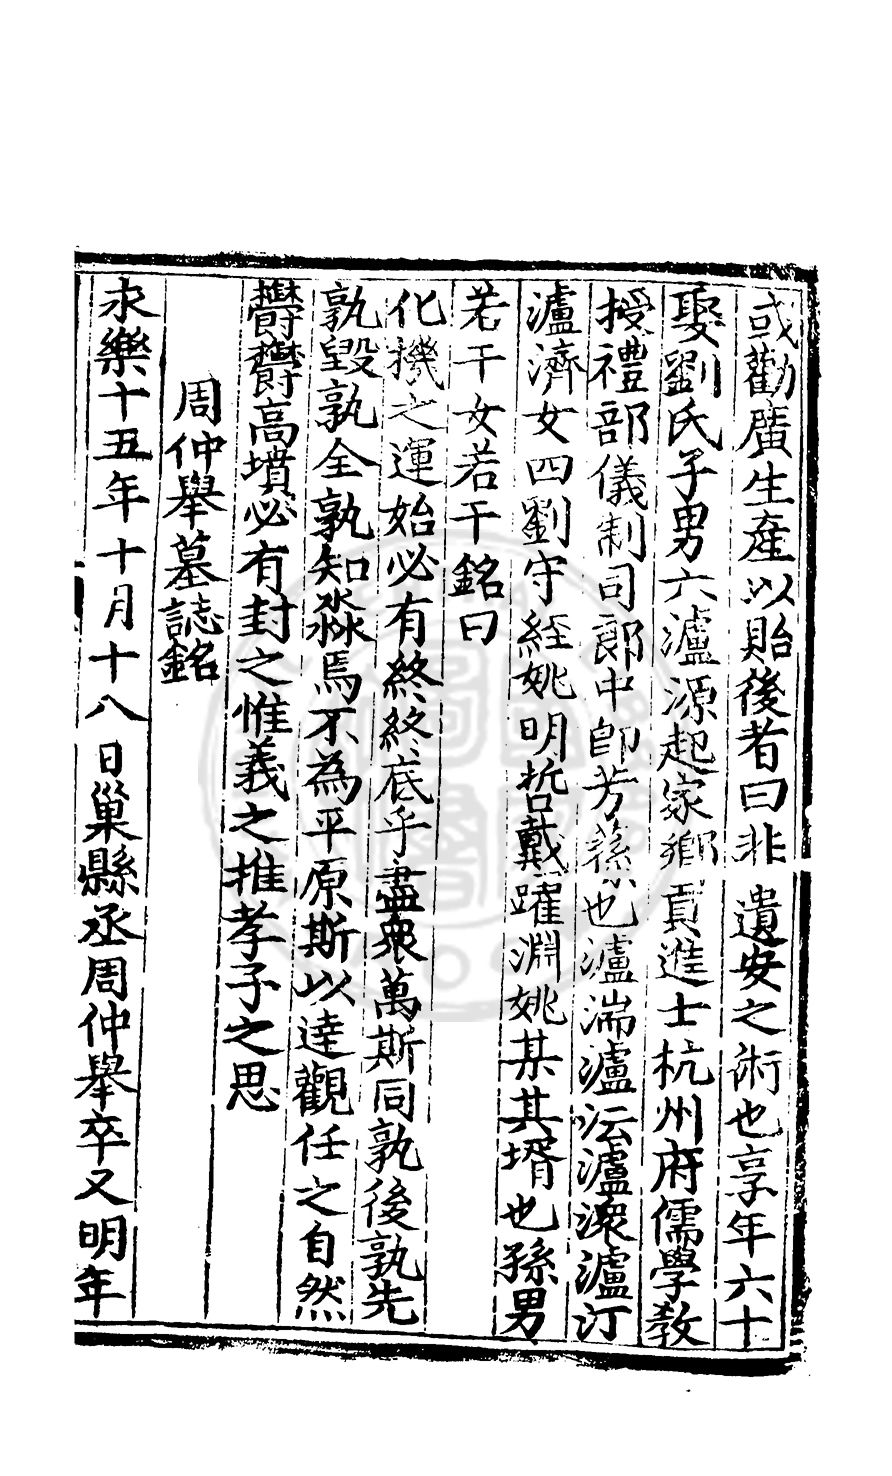 或勸廣生產以貽後者曰非遺安之術也享年六十
娶劉氏子男六瀘源起家鄉貢進士杭州府儒學教
授禮部儀制司郎中即芳蓀也瀘湍瀘沄瀘瀤瀘汀
瀘濟女四劉守經姚明哲戴躍淵姚某其壻也孫男
若干女若干銘曰
化機之運始必有終終底乎盡衆萬斯同孰後孰先
孰毀孰全孰知淼焉不為平原斯以達觀任之自然
欝欝高墳必有封之惟義之推孝子之思
周仲舉墓誌銘
永樂十五年十月十八日巢縣丞周仲舉卒又明年